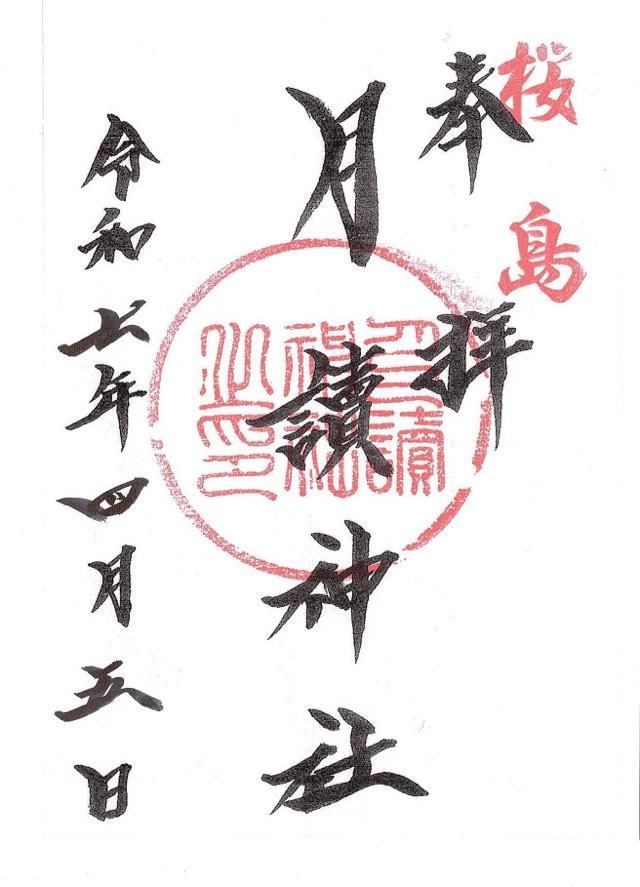 桜島
奉拝
月讀神社
月讀神社之印
令和七年四月五日